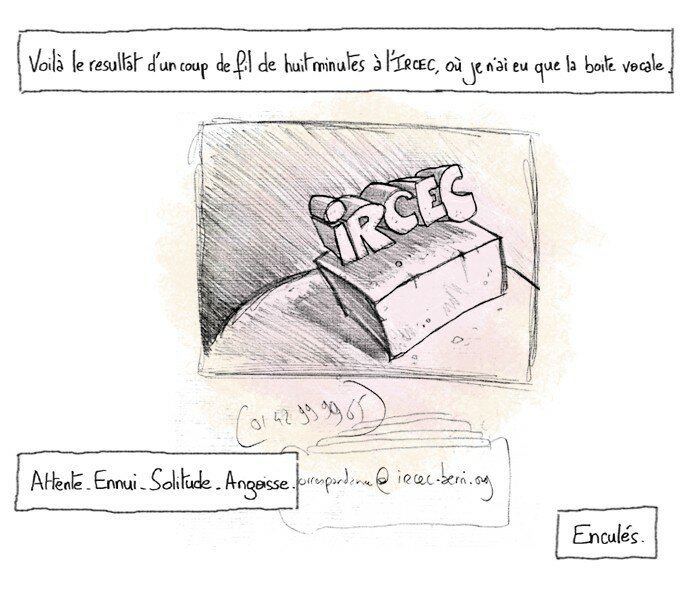 Voilà le resultat d'un coup de fil de huit minutes à l'IRCEC, où je n'ai eu que la boite vocale.
iRCEC
(01 42 99 99 65)
Attente_Ennui_Solitude_Angoisse.
correspondance@ircec-berri.org
Enculés.